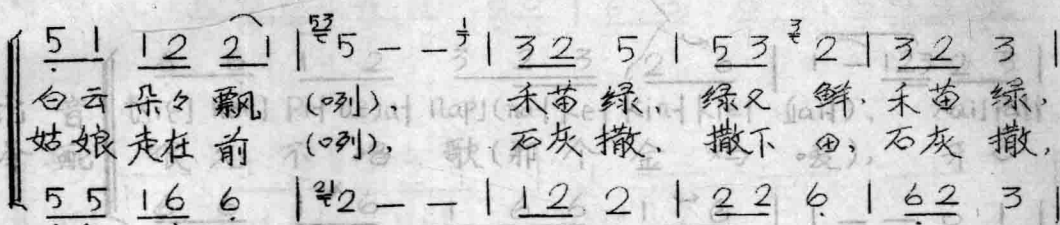 5 1 1 2 2 1 | 53 5 - - 1 | 3 2 5 | 5 3 3 2 | 3 2 3 |
白云 朵々 飘 (哆列), 禾苗 绿, 绿又 鲜, 禾苗 绿,
姑娘 走在 前 (哆列), 石灰 撒, 撒下 田, 石灰 撒,
5 5 1 6 6 | 21 2 - - | 1 2 2 | 2 2 6 | 6 2 3 |